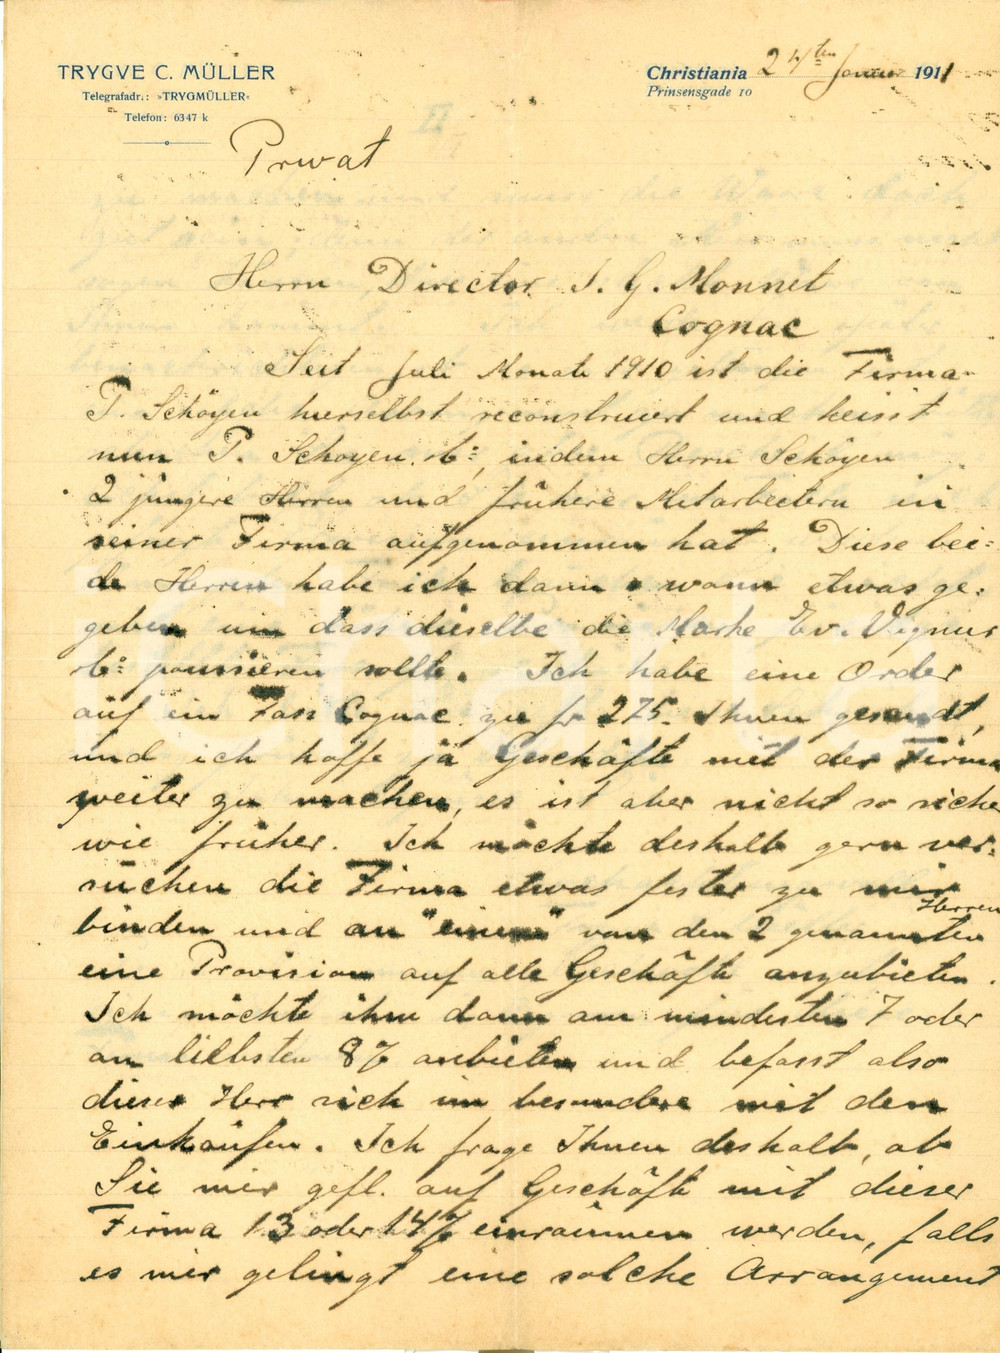 TRYGVE C. MÜLLER
Telegrafadr.: »TRYGMÜLLER«
Telefon: 6347 k
Christiania 24ten Januar 1911
Prinsensgade 10
Privat
Herrn Director J. G. Monnet
Cognac
Seit Juli Monat 1910 ist die Firma
P. Schöyen hierselbst reconstruiert und heisst
nun P. Schoyen & Co:, indem Herrn Schöyen
2 jüngere Herren und frühere Mitarbeitern in
seiner Firma aufgenommen hat. Diese bei=
de Herren habe ich dann & wann etwas ge=
geben um dass dieselbe die Marke Ev. Vignier
& Co: poussieren sollte. Ich habe eine Order
auf ein Fass Cognac zu fr 275.- Ihnen gesandt,
und ich hoffe ja Geschäfte mit der Firma
weiter zu machen, es ist aber nicht so sicher
wie früher. Ich möchte deshalb gern ver=
suchen die Firma etwas fester zu mir
binden und an "einem" von den 2 genannten Herren
eine Provision auf alle Geschäfte anzubieten.
Ich möchte ihm dann am mindesten 7 oder
am liebsten 8% anbieten und befasst also
dieser Herr sich im besondere mit den
Einkäufen. Ich frage Ihnen deshalb, ob
Sie mir gefl. auf Geschäfte mit dieser
Firma 13 oder 14% einräumen werden, falls
es mir gelingt eine solche Arrangement